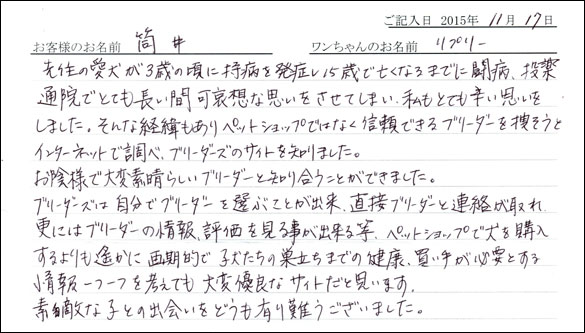 ご記入日 2015年 11月 17日
お客様のお名前 筒井 ワンちゃんのお名前 リプリー
先住の愛犬が3歳の頃に持病を発症し15歳で亡くなるまでに闘病、投薬
通院でとても長い間可哀想な思いをさせてしまい、私もとても辛い思いを
しました。そんな経緯もありペットショップではなく信頼できるブリーダーを捜そうと
インターネットで調べ、ブリーダーズのサイトを知りました。
お陰様で大変素晴らしいブリーダーと知り合うことができました。
ブリーダーズは自分でブリーダーを選ぶことが出来、直接ブリーダーと連絡が取れ
更にはブリーダーの情報、評価を見る事が出来る等、ペットショップで犬を購入
するよりも遥かに画期的で子犬たちの巣立ちまでの健康、買い手が必要とする
情報一つ一つを考えても大変優良なサイトだと思います。
素敵な子との出会いをどうも有り難うございました。